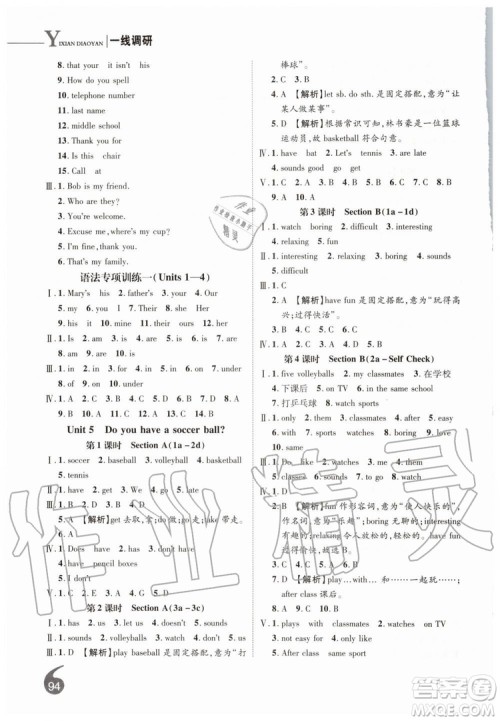 YIXIAN DIAOYAN 一线调研
8. that your it isn't his
9. How do you spell
10. telephone number
11. last name
12. middle school
13. Thank you for
14. Is this chair
15. call at
Ⅲ. 1. Bob is my friend.
2. They aren't red.
3. You're welcome.
4. Excuse me, where's my cup?
5. I'm fine, thank you.
6. That's my family.
语法专项训练一(Units 1—4)
Ⅰ. 1. Mary's his 2. father's 3. photos
4. you I 5. Their 6. us she Her
7. His 8. her
Ⅱ. 1. is 2. am 3. is 4. are 5. is 6. are
7. are 8. is
Ⅲ. 1. in 2. on 3. in 4. of 5. under 6. for
7. at 8. to
Ⅳ. 1. D 2. D 3. A 4. D 5. A 6. D 7. D
8. A 9. C 10. C 11. B 12. B
Unit 5 Do you have a soccer ball?
第 1 课时 Section A(1a-2d)
Ⅰ. 1. soccer 2. baseball 3. volleyball
4. basketball
5. tennis
Ⅱ. 1. do 2. has 3. Do 4. volleyballs 5. bat
Ⅲ. 1. B 2. A 3. D 4. C
5. A 【解析】get 去取, take 带走。
Ⅳ. 1. Does have 2. doesn't have
4. have pencil boxes
5. I don't
第 2 课时 Section A(3a-3c)
Ⅰ. 1. sounds 2. volleyball 3. has 4. late
Ⅱ. 1. do 2. sounds 3. volleyballs 4. us
5. doesn't
Ⅲ. 1. A 【解析】play baseball 意为“打
棒球”。
2. C 3. B
4. A 【解析】let sb. do sth. 是固定搭配, 意为“让
某人做某事”。
5. A 【解析】根据常识可知, 林书豪是一位篮球
运动员, 故 basketball 符合句意。
Ⅳ. 1. have bat 2. Let's tennis 3. are late
4. sounds good 5. let get
第 3 课时 Section B(1a-1d)
Ⅰ. 1. watch 2. boring 3. difficult
4. interesting
5. relaxing
Ⅱ. 1. watch 2. sounds 3. difficult 4. interesting
5. relaxing
Ⅲ. 1. C
2. A 【解析】have fun 是固定搭配, 意为“玩得高
兴; 过得快活”。
3. B 4. D 5. A
第 4 课时 Section B(2a-Self Check)
Ⅰ. 1. five volleyballs 2. my classmates 3. 在学校
4. 下课后 5. on TV 6. same school
7. 打乒乓球 8. watch sports
Ⅱ. 1. only 2. them 3. classmates 4. difficult
5. easy
Ⅲ. 1. Do... like 2. interesting 3. See
4. classes 5. sounds
Ⅳ. 1. C
2. A 【解析】fun 作形容词, 意为“使人快乐的”,
作名词, 意为“乐趣”; boring 无聊的; interesting
有趣的; relaxing 令人放松的, 轻松的。
3. C 4. B
5. D 【解析】play... with... 和……一起玩……;
after class 课后。
Ⅴ. 1. plays sports 2. watches on TV
3. after class 4. Does have
5. It sounds
94